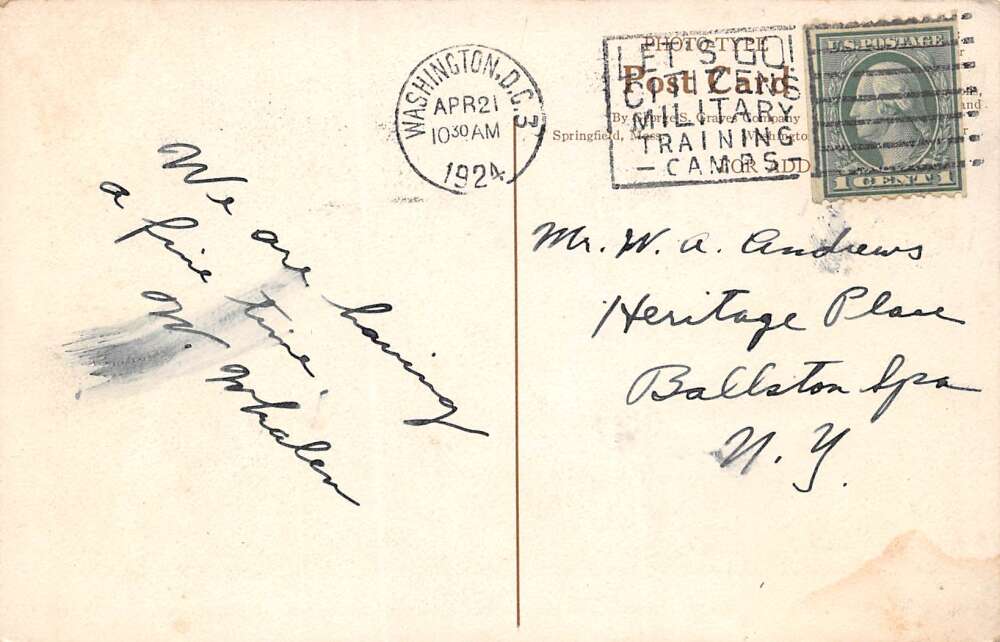 WASHINGTON, D.C. 3
APR 21
10 30 AM
1924
LET'S GO!
CITIZENS
MILITARY
TRAINING
— CAMPS —
PHOTO-TYPE
Post Card
By George S. Graves Company
Springfield, Mass. Washington
and
FOR ADD
U.S. POSTAGE
1 CENT 1
We are having
a fine time.
W. Whalen
Mr. W. A. Andrews
Heritage Place
Ballston Spa
N. Y.